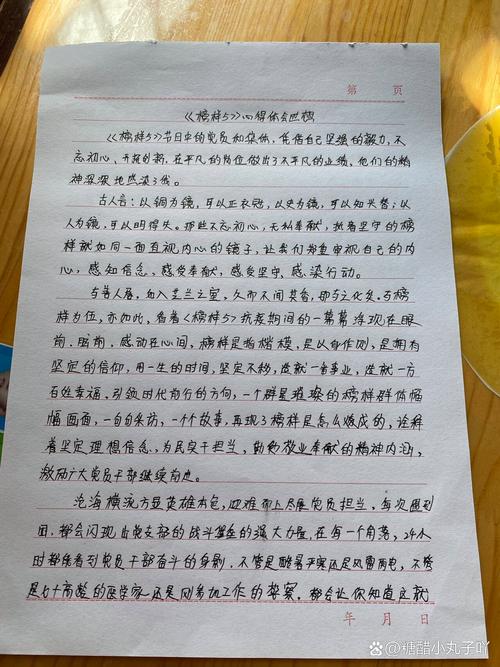 第 页
《榜样5》心得体会四榜
《榜样5》节目中的党员和集体,凭借自己坚强的毅力,不
忘初心、开拓创新,在平凡的岗位做出了不平凡的业绩,他们的精
神深深地感染了我。
古人言:以铜为镜,可以正衣冠,以史为镜,可以知兴替;以
人为镜,可以明得失。那些不忘初心,无私奉献,执着坚守的榜
样就如同一面直视内心的镜子,让我们郑重审视自己的内
心,感知信念、感受奉献,感受坚守,感染行动。
与善人居,如入芝兰之室,久而不闻其香,即与之化矣。与榜
样为伍,亦如此,看着《榜样5》抗疫期间的一幕幕浮现在眼
前,感动在心间,榜样是指楷模,是以身作则,是拥有
坚定的信仰,用一生的时间,坚定不移,造就一番事业,造就一方
百姓幸福,引领时代前行的方向,一个群星璀璨的榜样群体幅
幅画面,一句句采访,一个个故事,再现了榜样是怎么炼成的,诠释
着坚定理想信念、为民实干担当,勤勉敬业奉献的精神内涵,
激励广大党员干部继续前进。
沧海横流方显英雄本色,迎难而上尽展党员担当,每次遇到困
困,都会闪现出党支部的战斗堡垒的强大力量,在每一个角落,24小
时都能看到党员干部奋斗的身影,不管是酷暑严寒还是风雪雨电,不管
是七十高龄的医学家还是刚参加工作的
都会让你知道
年 月 日
糖醋小丸子吖